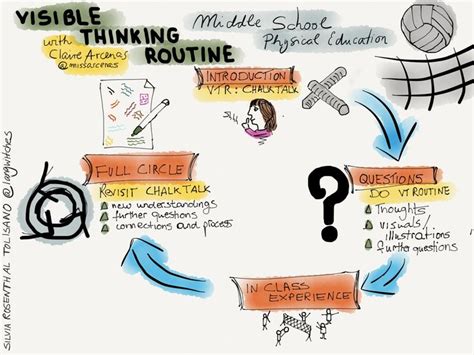 VISIBLE
THINKING
ROUTINE
with
Claire Arcenas
@missarcenas
Middle School
Physical Education
INTRODUCTION
VTR: CHALKTALK
QUESTIONS
DO VT ROUTINE
Thoughts
visuals/
illustrations
further questions
?
IN CLASS
EXPERIENCE
FULL CIRCLE
REVISIT CHALKTALK
new understandings
further questions
connections and process
SILVIA ROSENTHAL TOLISANO @langwitches